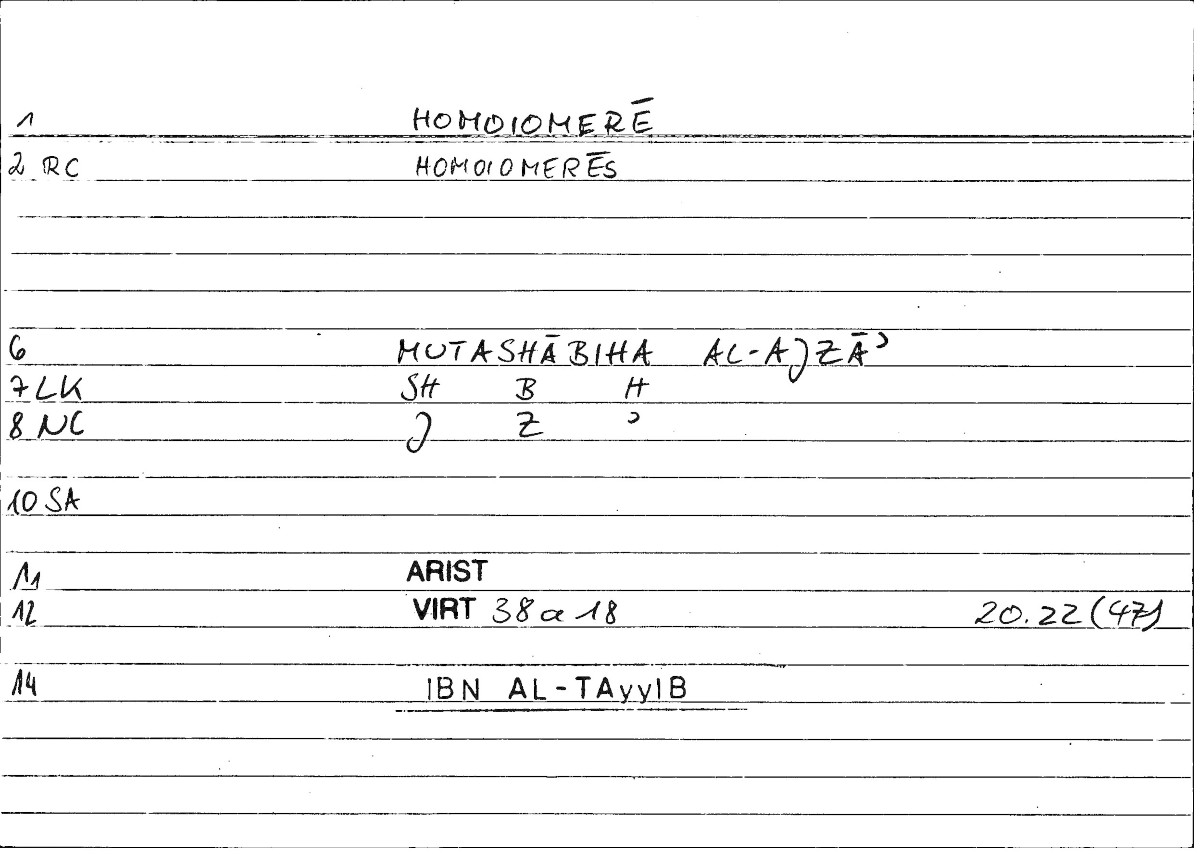 1 HOMOIOMERĒ
2 RC HOMOIOMERĒS
6 MUTASHĀBIHA AL-AJZĀʾ
7 LK SH B H
8 NC J Z ʾ
10 SA
11 ARIST
12 VIRT 38 a 18 20.22 (47)
14 IBN AL-TAyyIB